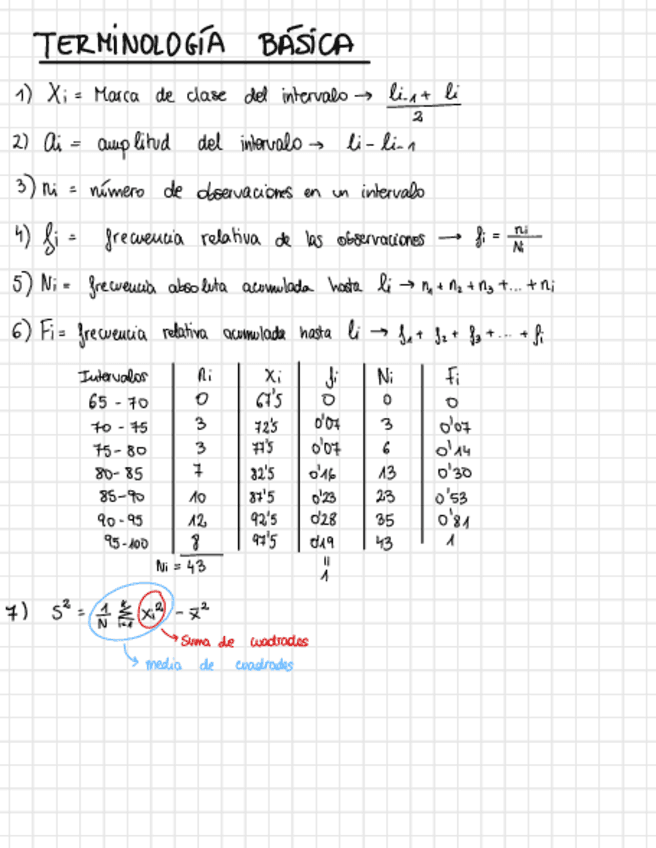 TERMINOLOGÍA BÁSICA
1) Xi = Marca de clase del intervalo → (li-1 + li) / 2
2) ai = amplitud del intervalo → li - li-1
3) ni = número de observaciones en un intervalo
4) fi = frecuencia relativa de las observaciones → fi = ni / Ni
5) Ni = frecuencia absoluta acumulada hasta li → n1 + n2 + n3 + ... + ni
6) Fi = frecuencia relativa acumulada hasta li → f1 + f2 + f3 + ... + fi
Intervalos ni Xi fi Ni Fi
65 - 70 0 67'5 0 0 0
70 - 75 3 72'5 0'07 3 0'07
75 - 80 3 77'5 0'07 6 0'14
80 - 85 7 82'5 0'16 13 0'30
85 - 90 10 87'5 0'23 23 0'53
90 - 95 12 92'5 0'28 35 0'81
95 - 100 8 97'5 0'19 43 1
Ni = 43 = 1
7) S² = 1/N Σ i=1 k xi² - x̄²
Suma de cuadrados
media de cuadrados